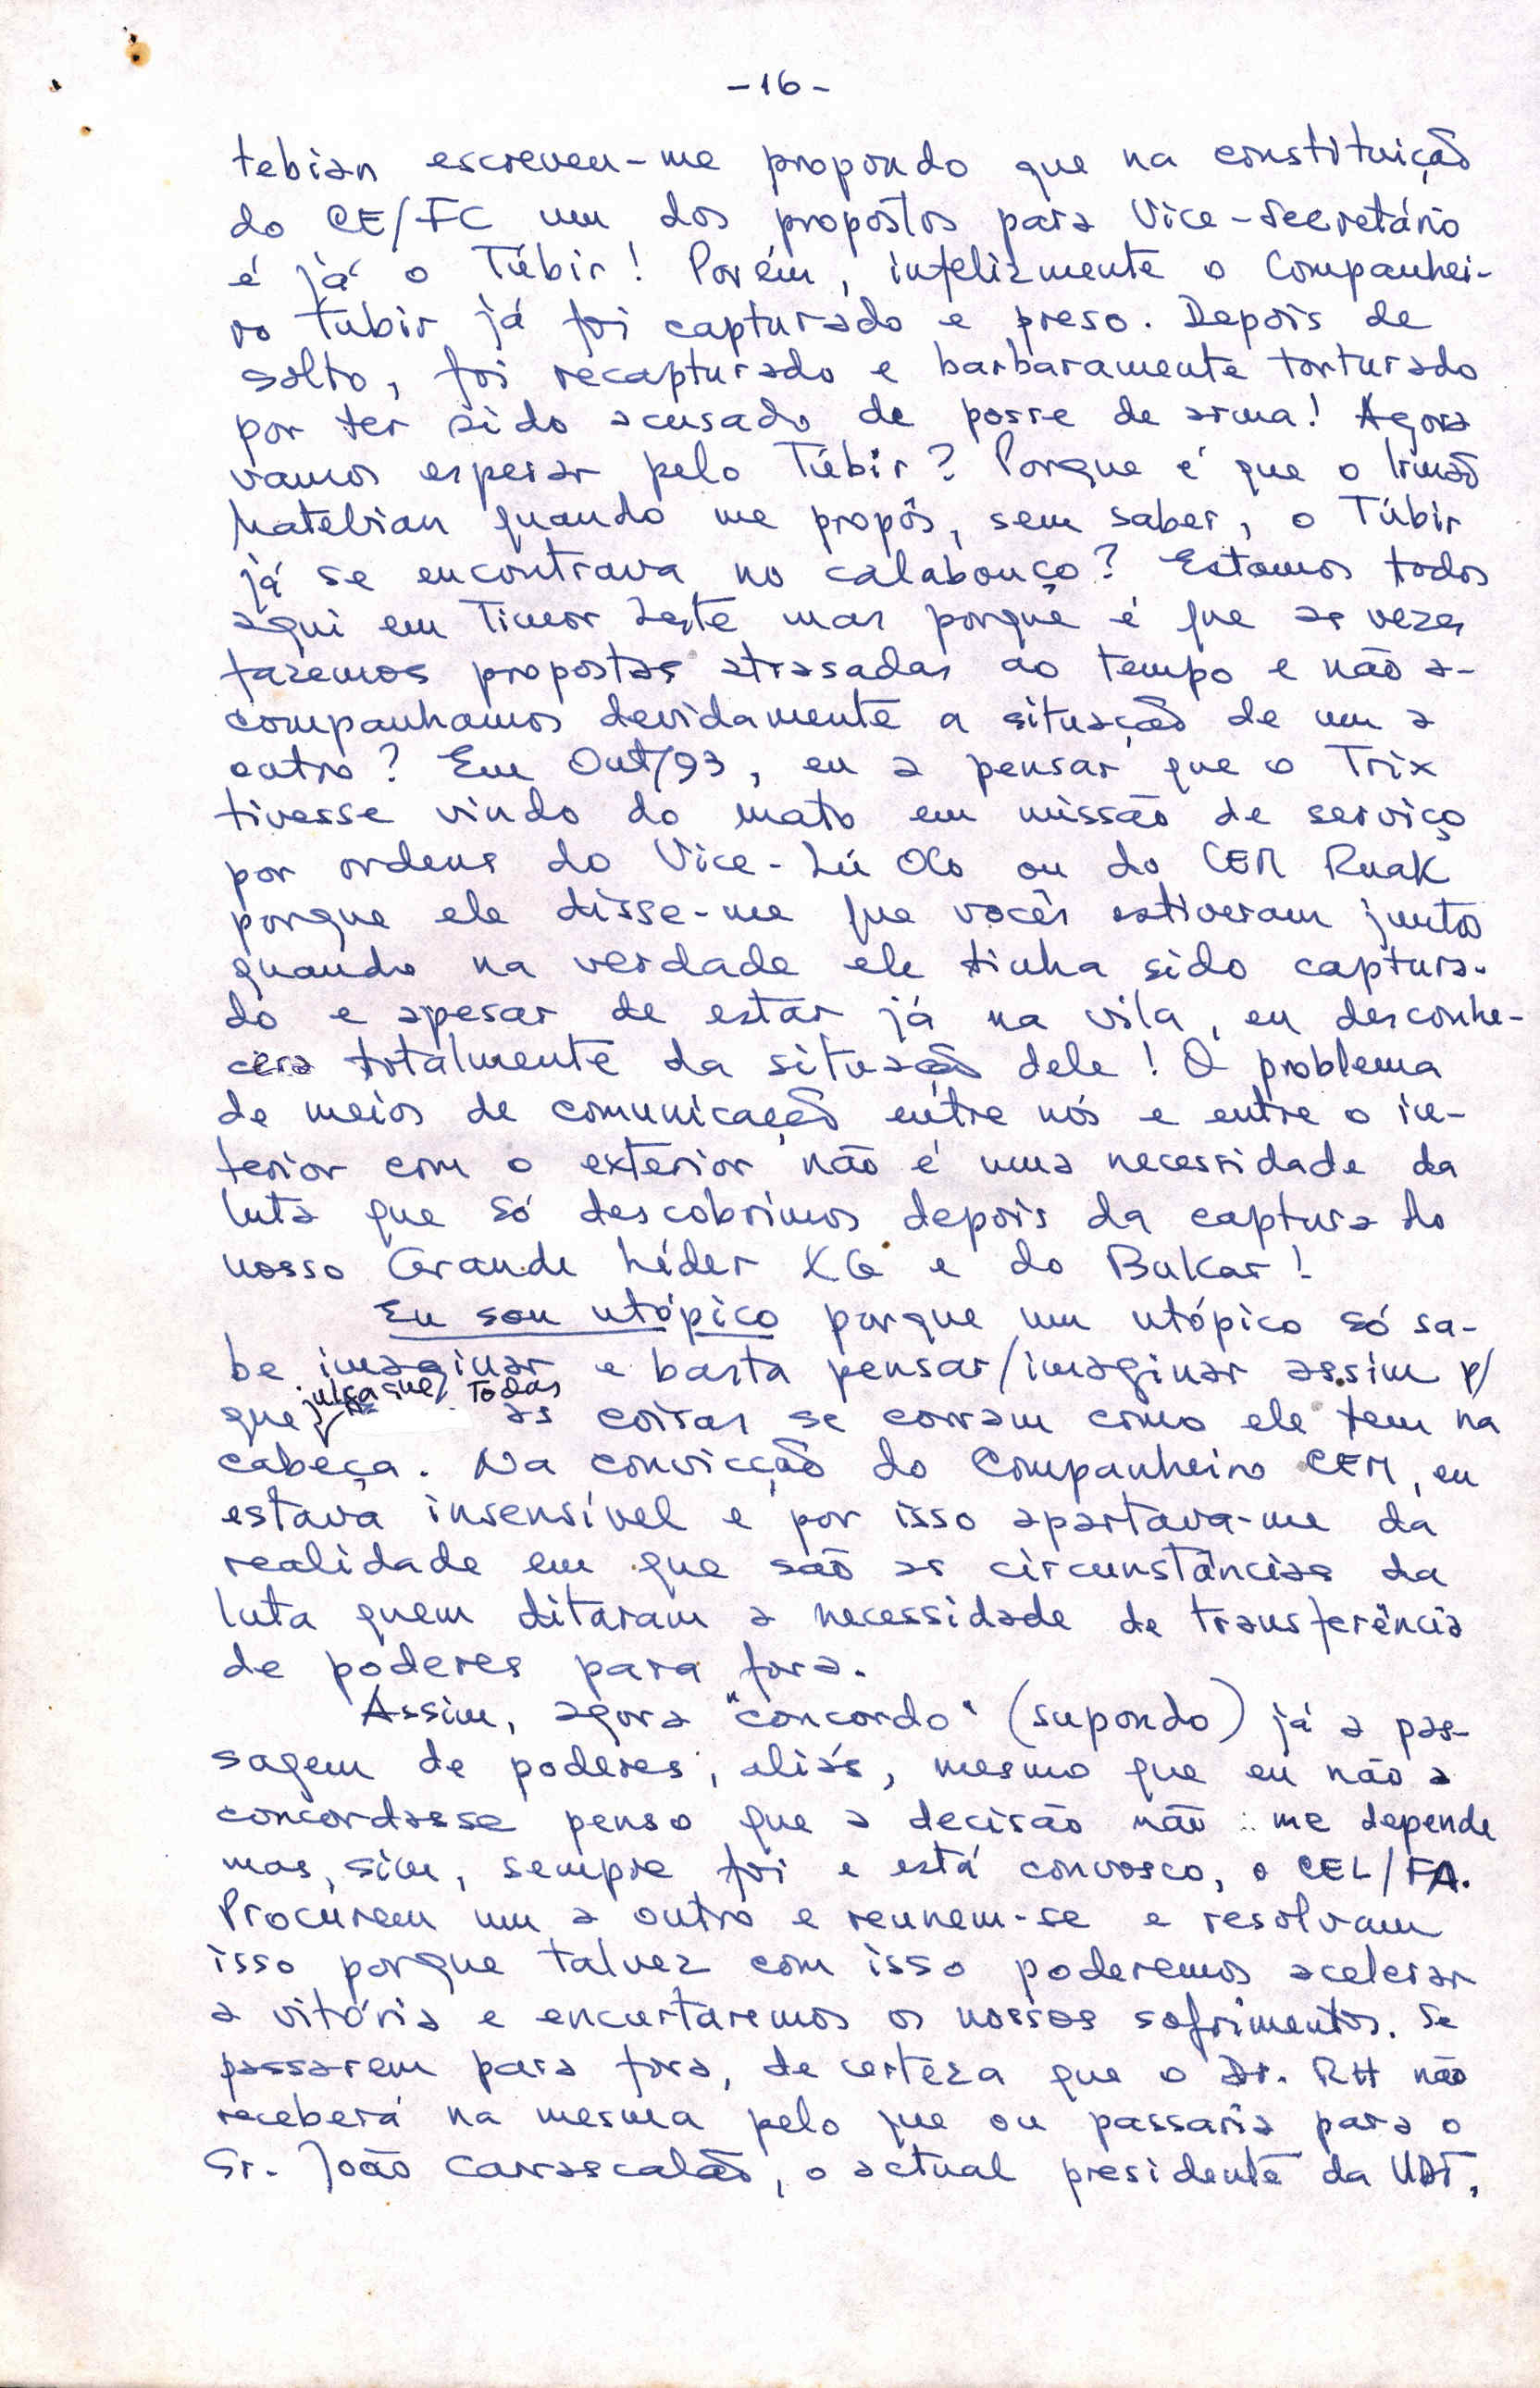 -16-
tebian escreveu-me propondo que na constituição
do CE/FC um dos propostos para Vice-Secretário
é já o Túbir! Porém, infelizmente o Companhei-
ro Tubir já foi capturado e preso. Depois de
solto, foi recapturado e barbaramente torturado
por ter sido acusado de posse de arma! Agora
vamos esperar pelo Túbir? Porque é que o Irmão
Matebian quando me propôs, sem saber, o Túbir
já se encontrava no calabouço? Estamos todos
aqui em Timor Leste mas porquê é que as vezes
fazemos propostas atrasadas ao tempo e não a-
companhamos devidamente a situação de um a
outro? Em Out/93, eu a pensar que o Trix
tivesse vindo do mato em missão de serviço
por ordens do Vice-Lú Olo ou do CEM Ruak
porque ele disse-me que vocês estiveram juntos
quando na verdade ele tinha sido captura-
do e apesar de estar já na vila, eu desconhe-
cera totalmente da situação dele! O problema
de meios de comunicação entre nós e entre o in-
terior com o exterior não é uma necessidade da
luta que só descobrimos depois da captura do
nosso Grande Líder XG e do Bukar!
Eu sou utópico porque um utópico só sa-
be imaginar e basta pensar/imaginar assim p/
que julga que todas as coisas se corram como ele tem na
cabeça. Na convicção do Companheiro CEM, eu
estava insensível e por isso apartava-me da
realidade em que são as circunstâncias da
luta quem ditaram a necessidade de transferência
de poderes para fora.
Assim, agora "concordo" (supondo) já a pas-
sagem de poderes; aliás, mesmo que eu não a
concordasse penso que a decisão não me depende
mas, sim, sempre foi e está convosco, o CEL/FA.
Procurem um a outro e reunem-se e resolvam
isso porque talvez com isso poderemos acelerar
a vitória e encurtaremos os nossos sofrimentos. Se
passarem para fora, de certeza que o Dr. RH não
receberá na mesma pelo que ou passaria para o
Sr. João Carrascalão, o actual presidente da UDT,